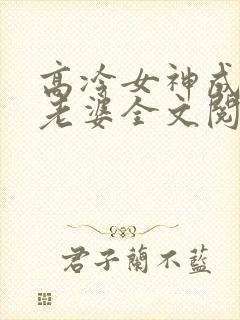 高冷女神成
老婆全文阅
君子蘭不藍